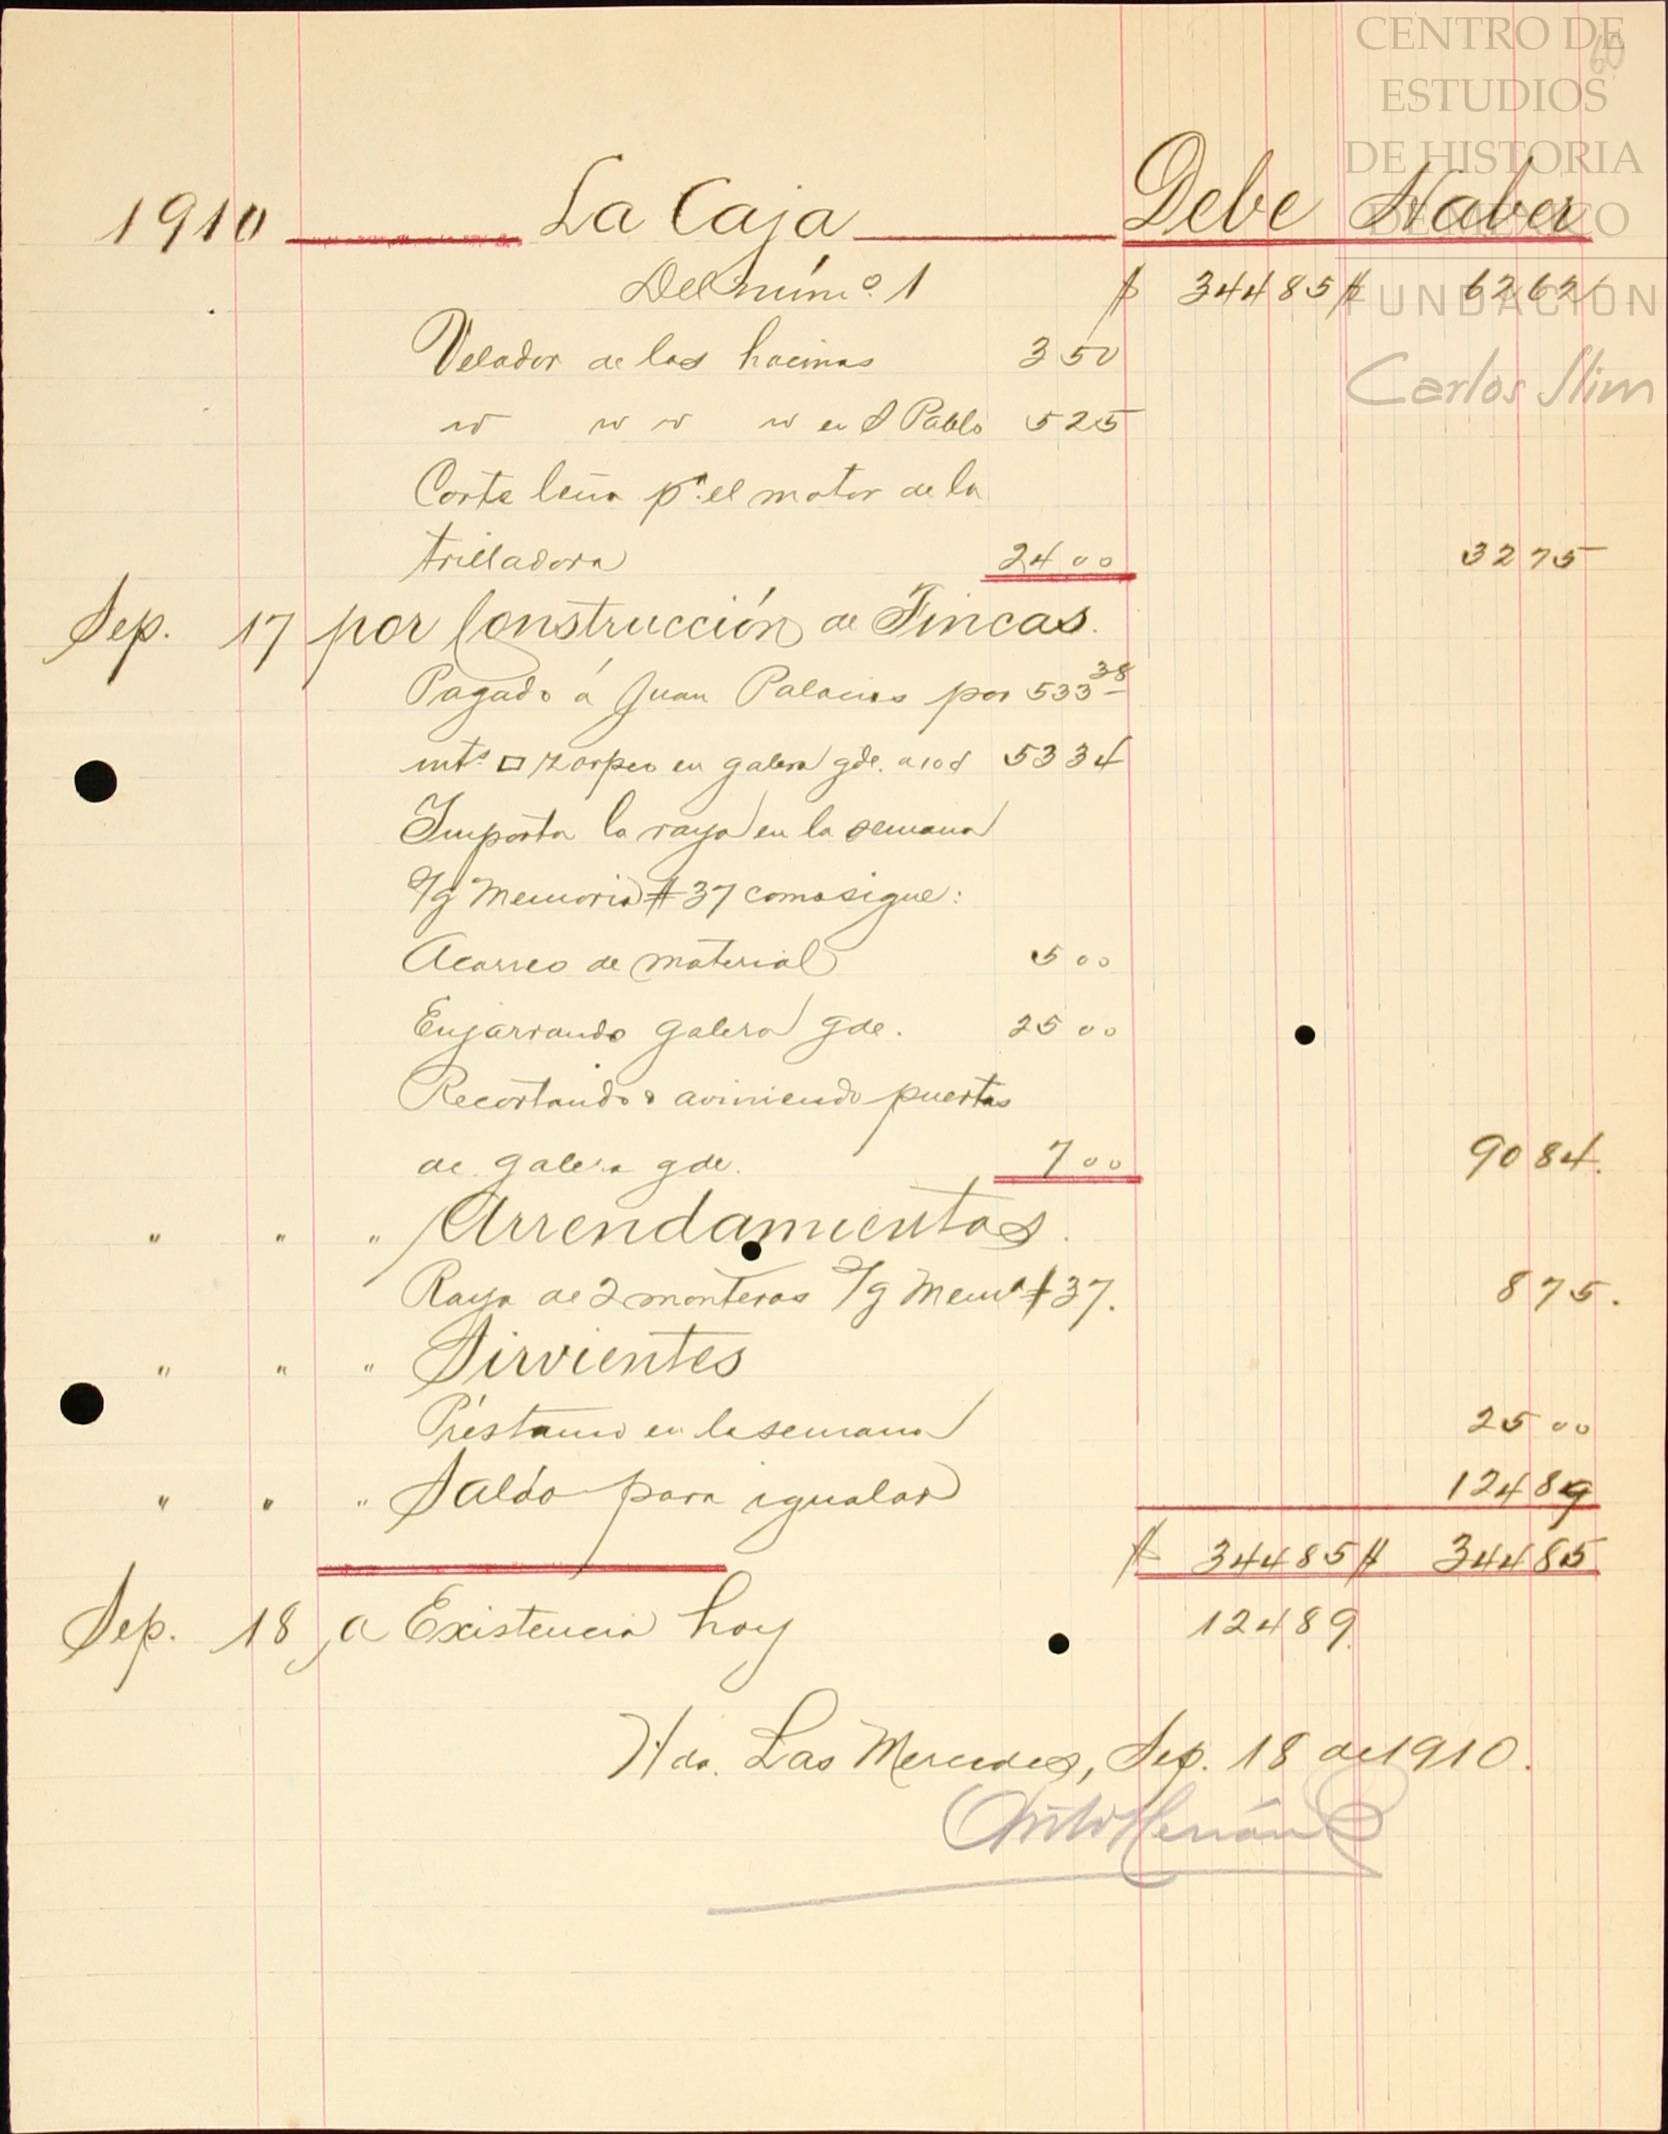 CENTRO DE
ESTUDIOS
DE HISTORIA
DE MÉXICO
FUNDACIÓN
Carlos Slim
60
1910 La Caja Debe Haber
Del núm.º 1 $ 344 85 $ 62 62
Velador de las hacinas 3 50
" " " " en S Pablo 5 25
Corte leña pª el motor de la
trilladora 24 00 32 75
Sep. 17 por Construcción de Fincas.
Pagado á Juan Palacios por 533 38
mts □ zarpeo en galera gde. a 10 ¢ 53 34
Importa la raya en la semana
s/g Memoria # 37 como sigue:
Acarreo de material 5 00
Enjarrando galera gde. 25 00
Recortando & aviniendo puertas
de galera gde. 7 00 90 84.
" " " Arrendamientos.
Raya de 2 monteros s/g Memª # 37. 8 75.
" " " Sirvientes
Préstamo en la semana 25 00
" " " Saldo para igualar 124 89
$ 344 85 $ 344 85
Sep. 18 a Existencia hoy 124 89
Hda. Las Mercedes, Sep. 18 de 1910.